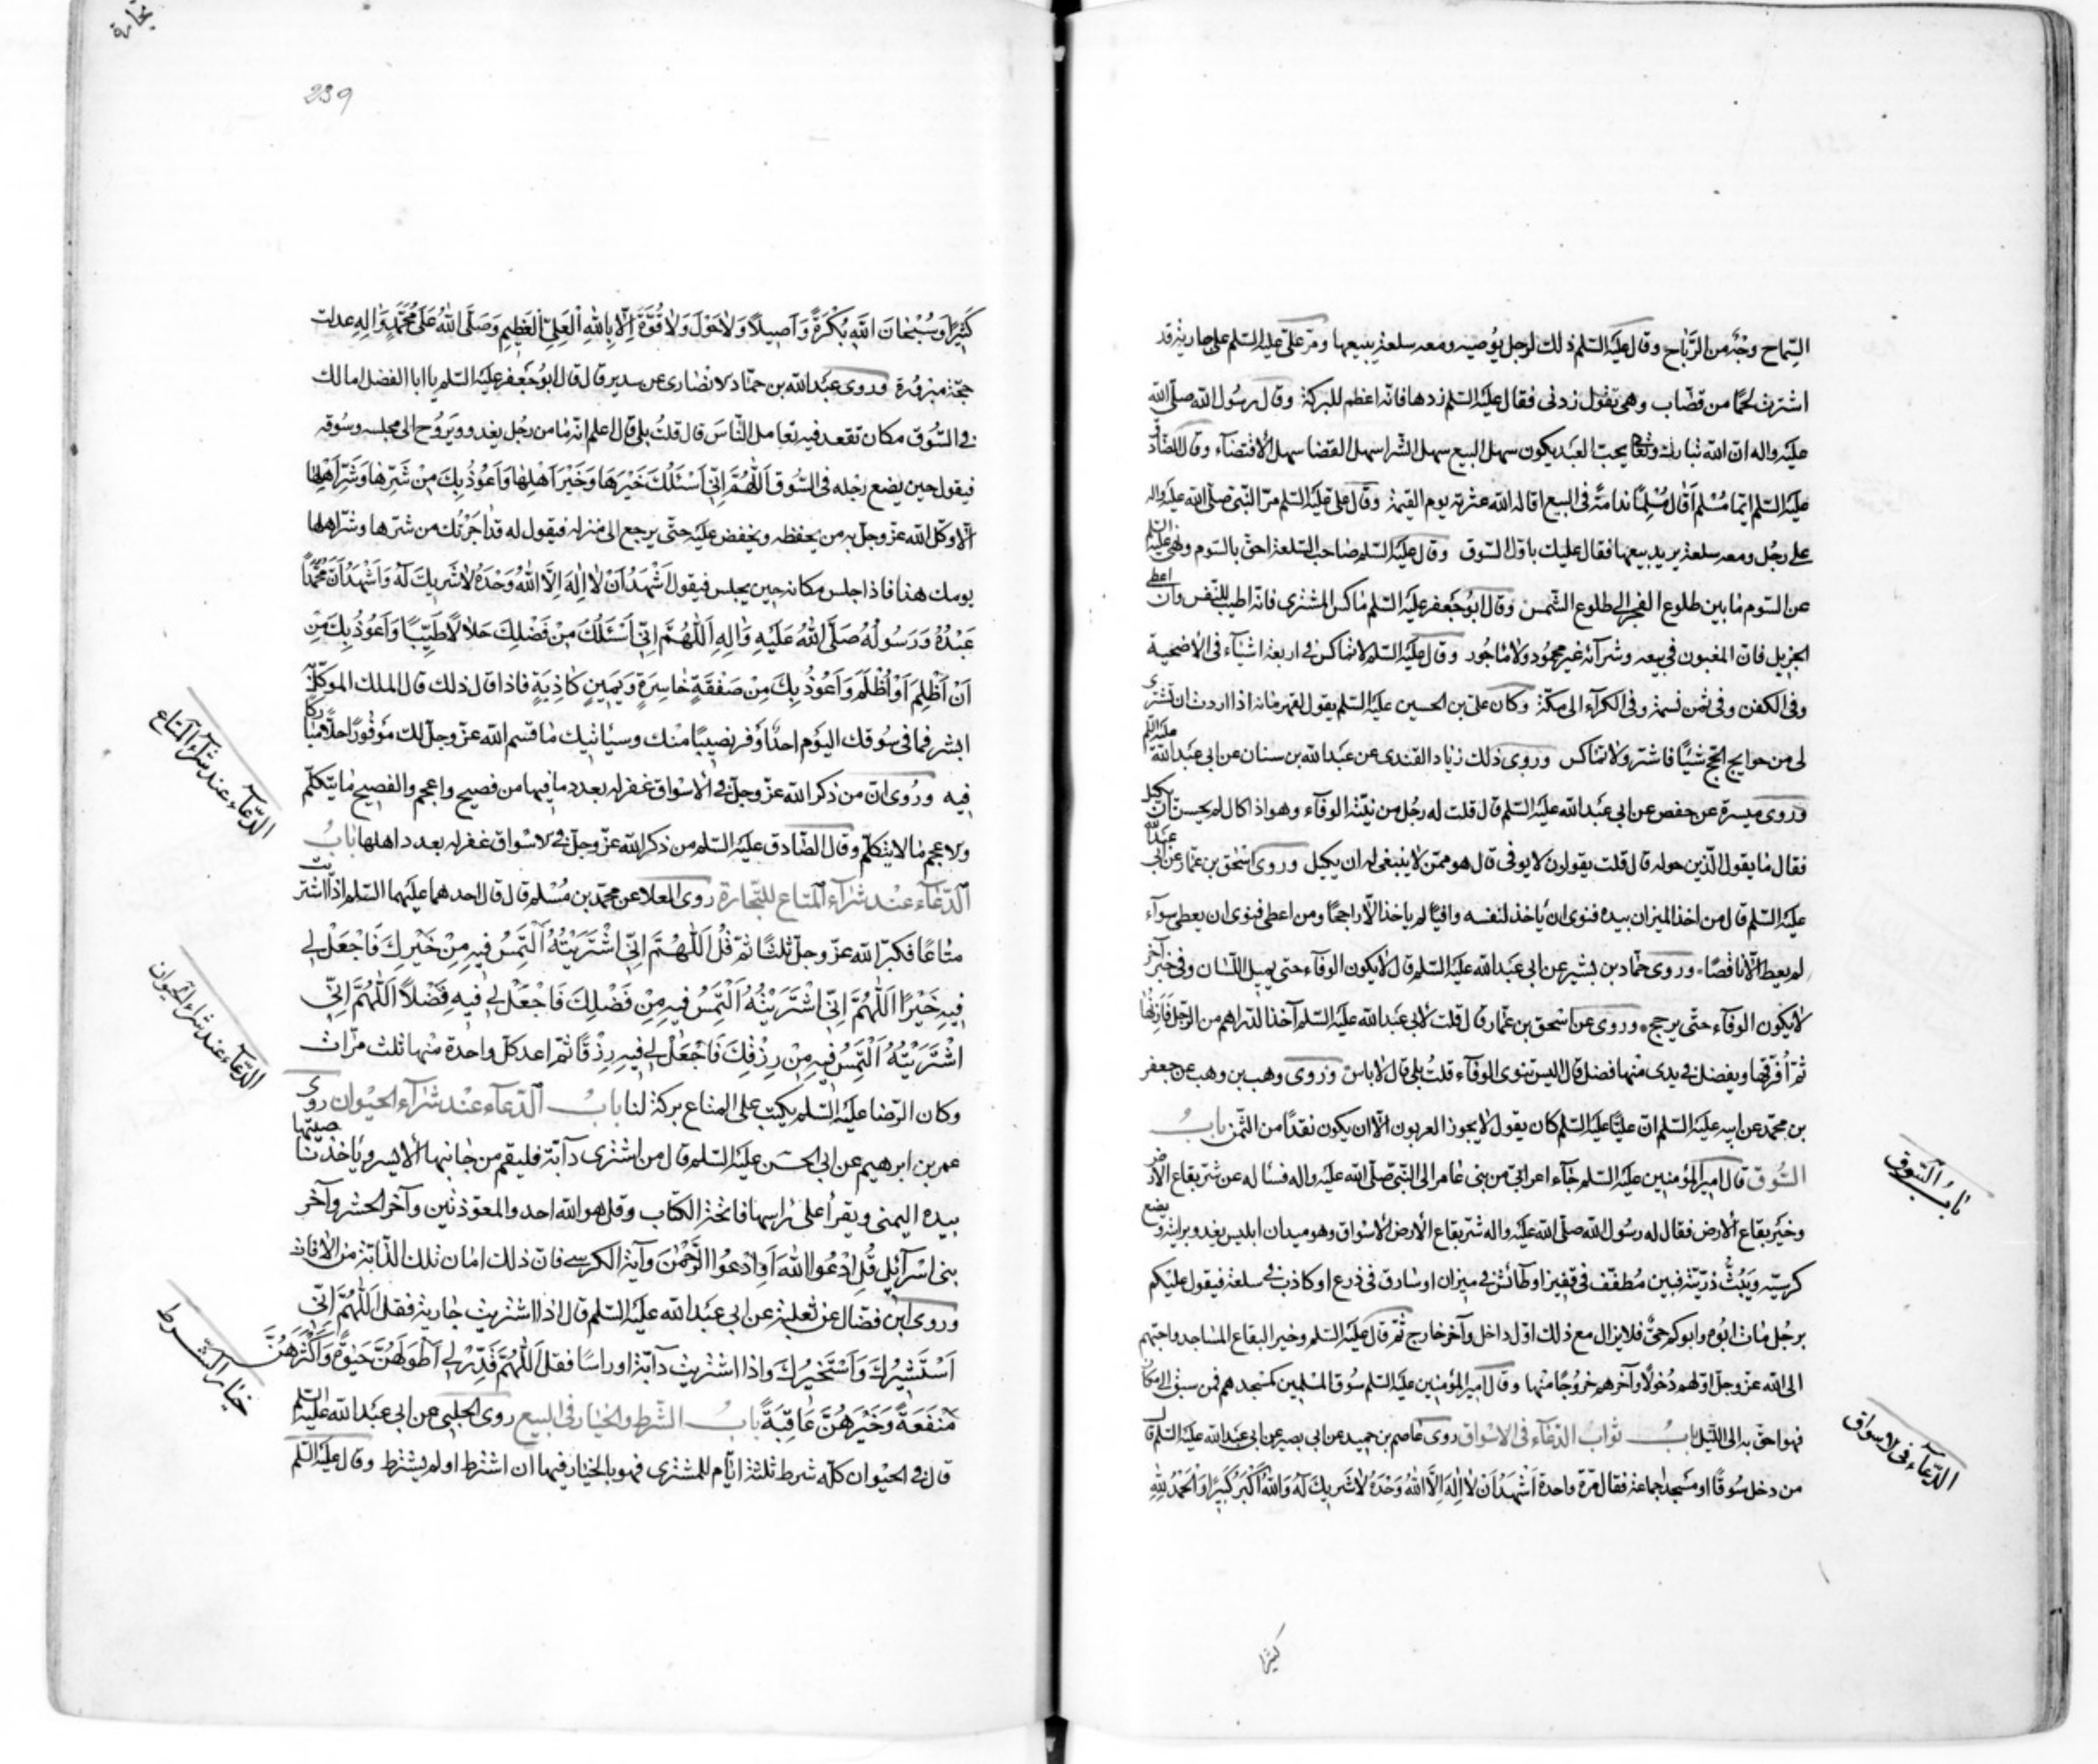 السماح وجه من الرباح وقال عليه السلم ذلك لرجل يوصيه ومعه سلعة يبيعها ومر علي عليه السلم على جارية قد
اشترت لحما من قصاب وهى تقول زدنى فقال عليه السلم زدها فانه اعظم للبركة وقال رسول الله صلى الله
عليه واله ان الله تبارك وتعالى يحب العبد يكون سهل البيع سهل الشرا سهل القضا سهل الاقتضآء وقال الصادق
عليه السلم ايما مسلم اقال مسلما ندامة فى البيع اقاله الله عثرته يوم القيمة وقال على عليه السلم مر النبى صلى الله عليه واله
على رجل ومعه سلعة يريد بيعها فقال عليك باول السوق وقال عليه السلم صاحب السلعة احق بالسوم ونهى عليه السلم
عن السوم ما بين طلوع الفجر الى طلوع الشمس وقال ابو جعفر عليه السلم ماكس المشترى فانه اطيب للنفس وان اعطى
الجزيل فان المغبون فى بيعه وشرآئه غير محمود ولا ماجور وقال عليه السلم لا تماكس فى اربعة اشيآء فى الاضحية
وفى الكفن وفى ثمن نسمة وفى الكرآء الى مكة وكان على بن الحسين عليه السلم يقول لقهرمانه اذا اردت ان تشترى
لى من حوايج الحج شيئا فاشتر ولا تماكس وروى ذلك زياد القندى عن عبد الله بن سنان عن ابى عبد الله عليه السلم
وروى ميسرة عن حفص عن ابى عبد الله عليه السلم قال قلت له رجل من نيته الوفآء وهو اذا كال لم يحسن ان يكيل
فقال ما يقول الذين حوله قال قلت يقولون لا يوفى قال هو ممن لا ينبغى له ان يكيل وروى اسحق بن عمار عن ابى عبد الله
عليه السلم قال من اخذ الميزان بيده فنوى ان ياخذ لنفسه وافيا لم ياخذ الا راجحا ومن اعطى فنوى ان يعطى سوآء
لم يعط الا ناقصا وروى حماد بن بشير عن ابى عبد الله عليه السلم قال لا يكون الوفآء حتى يميل اللسان وفى خبر آخر
لا يكون الوفآء حتى يرجح وروى عن اسحق بن عمار قال قلت لابى عبد الله عليه السلم آخذ الدراهم من الرجل فازنها
ثم افرقها ويفضل فى يدى منها فضل قال اليس تنوى الوفآء قلت بلى قال لا باس وروى وهب بن وهب عن جعفر
بن محمد عن ابيه عليه السلم ان عليا عليه السلم كان يقول لا يجوز العربون الا ان يكون نقدا من الثمن باب
السوق قال امير المؤمنين عليه السلم جآء اعرابى من بنى عامر الى النبى صلى الله عليه واله فساله عن شر بقاع الارض
وخير بقاع الارض فقال له رسول الله صلى الله عليه واله شر بقاع الارض الاسواق وهو ميدان ابليس يغدو برايته ويضع
كرسيه ويبث ذريته فبين مطفف فى قفيز او طائش فى ميزان او سارق فى ذرع او كاذب فى سلعة فيقول عليكم
برجل مات ابوه وابوكم حى فلا يزال مع ذلك اول داخل وآخر خارج ثم قال عليه السلم وخير البقاع المساجد واحبهم
الى الله عز وجل اولهم دخولا وآخرهم خروجا منها وقال امير المؤمنين عليه السلم سوق المسلمين كمسجدهم فمن سبق الى مكان
فهو احق به الى الليل باب ثواب الدعآء فى الاسواق روى عاصم بن حميد عن ابى بصير عن ابى عبد الله عليه السلم قال
من دخل سوقا او مسجد جماعة فقال مرة واحدة اشهد ان لا اله الا الله وحده لا شريك له والله اكبر كبيرا والحمد لله
باب السوق
الدعآء فى الاسواق
كثيرا
239
كثيرا وسبحان الله بكرة واصيلا ولا حول ولا قوة الا بالله العلى العظيم وصلى الله على محمد واله عدلت
حجة مبرورة وروى عبد الله بن حماد الانصارى عن سدير قال قال ابو جعفر عليه السلم يا ابا الفضل اما لك
فى السوق مكان تقعد فيه تعامل الناس قال قلت بلى قال اعلم انه ما من رجل يغدو ويروح الى مجلسه وسوقه
فيقول حين يضع رجله فى السوق اللهم انى اسئلك خيرها وخير اهلها واعوذ بك من شرها وشر اهلها
الا وكل الله عز وجل به من يحفظه ويحفض عليه حتى يرجع الى منزله فيقول له قد اجرتك من شرها وشر اهلها
يومك هذا فاذا جلس مكانه حين يجلس فيقول اشهد ان لا اله الا الله وحده لا شريك له واشهد ان محمدا
عبده ورسوله صلى الله عليه واله اللهم انى اسئلك من فضلك حلالا طيبا واعوذ بك من
ان اظلم او اظلم واعوذ بك من صفقة خاسرة ويمين كاذبة فاذا قال ذلك قال الملك الموكل به
ابشر فما فى سوقك اليوم احد اوفر نصيبا منك وسياتيك ما قسم الله عز وجل لك موفورا حلالا مباركا
فيه وروى ان من ذكر الله عز وجل فى الاسواق غفر له بعدد ما فيها من فصيح واعجم والفصيح ما يتكلم
والاعجم ما لا يتكلم وقال الصادق عليه السلم من ذكر الله عز وجل فى الاسواق غفر له بعدد اهلها باب
الدعآء عند شرآء المتاع للتجارة روى العلا عن محمد بن مسلم قال قال احدهما عليهما السلم اذا اشتريت
متاعا فكبر الله عز وجل ثلثا ثم قل اللهم انى اشتريته التمس فيه من خيرك فاجعل لى
فيه خيرا اللهم انى اشتريته التمس فيه من فضلك فاجعل لى فيه فضلا اللهم انى
اشتريته التمس فيه من رزقك فاجعل لى فيه رزقا ثم اعد كل واحدة منها ثلث مرات
وكان الرضا عليه السلم يكتب على المتاع بركة لنا باب الدعآء عند شرآء الحيوان روى
عمر بن ابرهيم عن ابى الحسن عليه السلم قال من اشترى دآبة فليقم من جانبها الايسر وياخذ ناصيتها
بيده اليمنى ويقرأ على راسها فاتحة الكتاب وقل هو الله احد والمعوذتين وآخر الحشر وآخر
بنى اسرآئيل قل ادعوا الله او ادعوا الرحمن وآية الكرسى فان ذلك امان تلك الدآبة من الافات
وروى ابن فضال عن ثعلبة عن ابى عبد الله عليه السلم قال اذا اشتريت جارية فقل اللهم انى
استشيرك واستخيرك واذا اشتريت دآبة او راسا فقل اللهم قدر لى اطولهن حيوة واكثرهن
منفعة وخيرهن عاقبة باب الشرط والخيار فى البيع روى الحلبى عن ابى عبد الله عليه السلم
قال فى الحيوان كله شرط ثلثة ايام للمشترى فهو بالخيار فيها ان اشترط او لم يشترط وقال عليه السلم
الدعآء عند شرآء المتاع
الدعآء عند شراء الحيوان
خيار الشرط